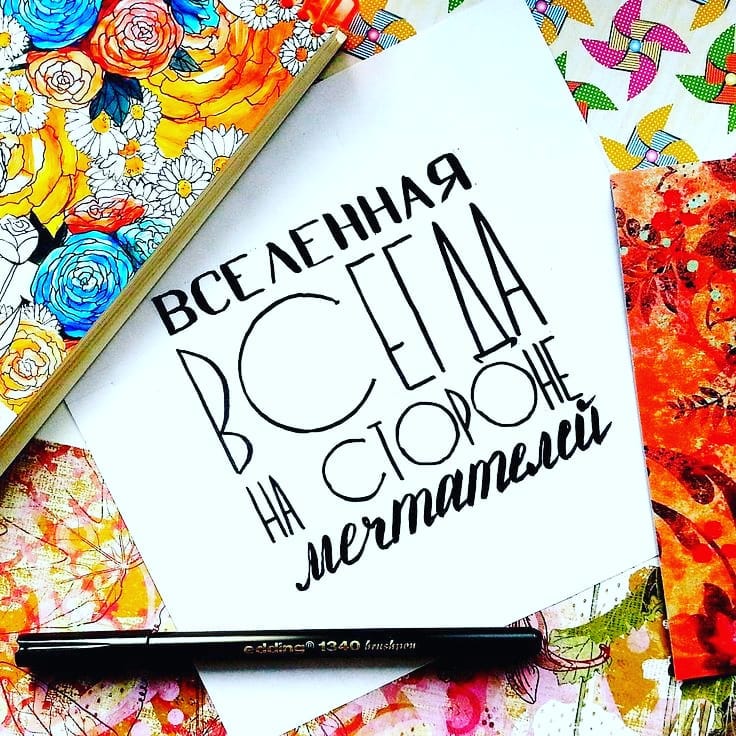 ВСЕЛЕННАЯ
ВСЕГДА
НА СТОРОНЕ
мечтателей
edding® 1340 brushpen